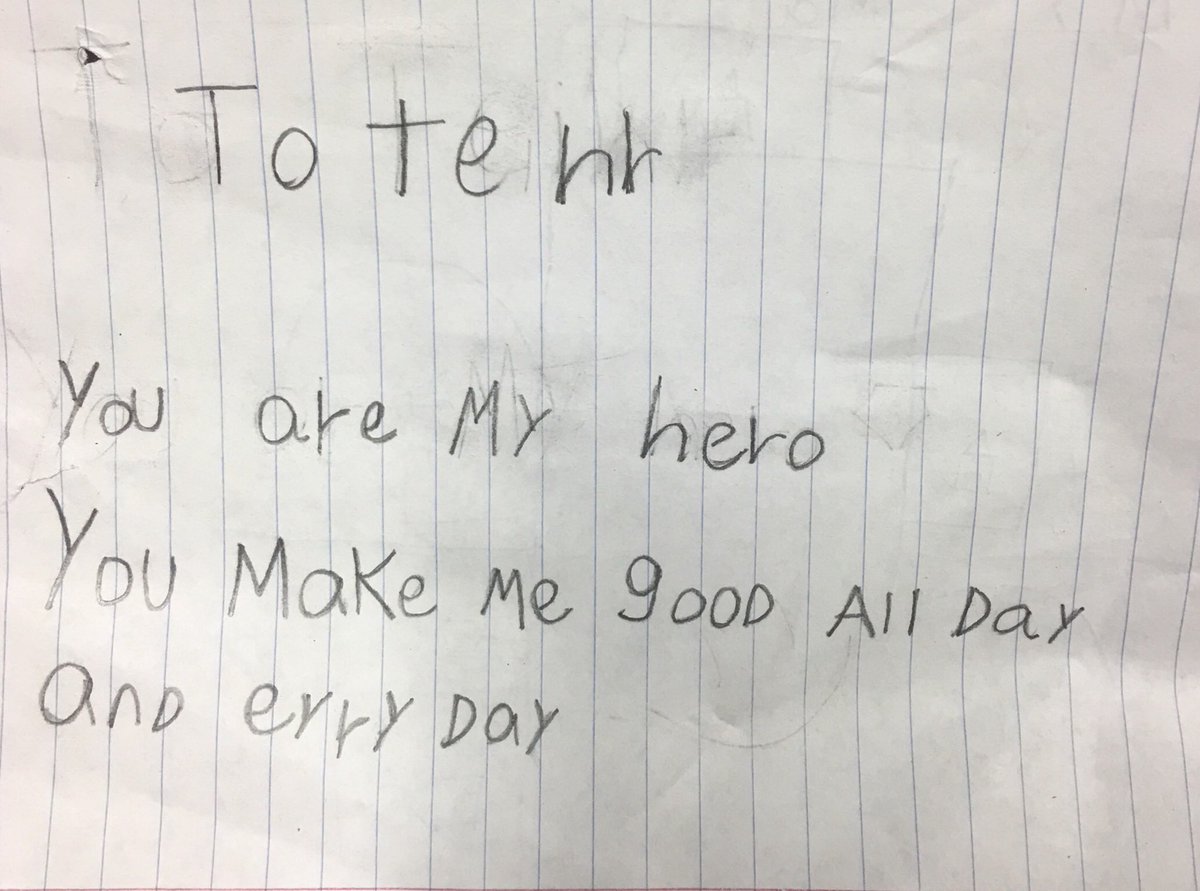 To tenr
You are My hero
You Make me gooD All Day
anD erry Day